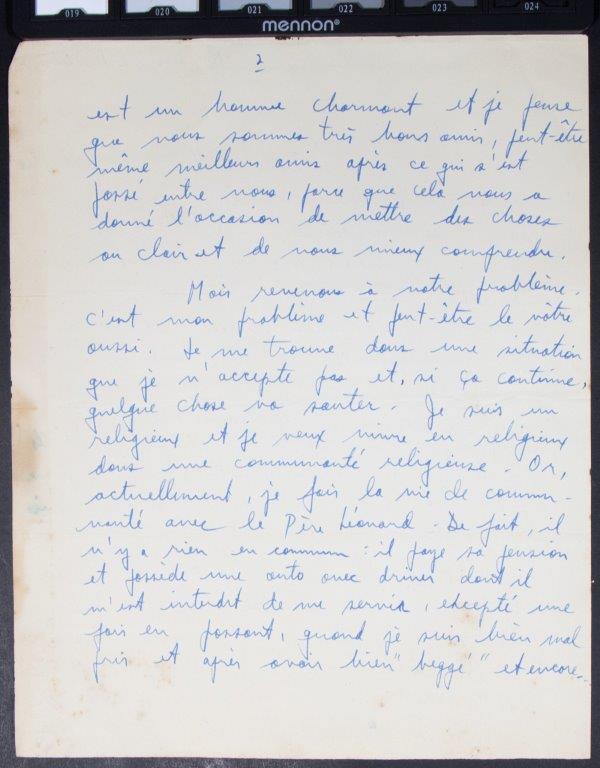 019 020 021 022 023 024
mennon®
2
est un homme charmant et je pense
que nous sommes très bons amis, peut-être
même meilleurs amis après ce qui s'est
passé entre nous, parce que cela nous a
donné l'occasion de mettre des choses
au clair et de nous mieux comprendre.
Mais revenons à notre problème.
C'est mon problème et peut-être le vôtre
aussi. Je me trouve dans une situation
que je n'accepte pas et, si ça continue,
quelque chose va sauter. Je suis un
religieux et je veux vivre en religieux
dans une communauté religieuse. Or,
actuellement, je fais la vie de commu-
nauté avec le Père Léonard. De fait, il
n'y a rien en commun : il paye sa pension
et possède une auto avec driver dont il
m'est interdit de me servir, excepté une
fois en passant, quand je suis bien mal
pris et après avoir bien "beggé" et encore...